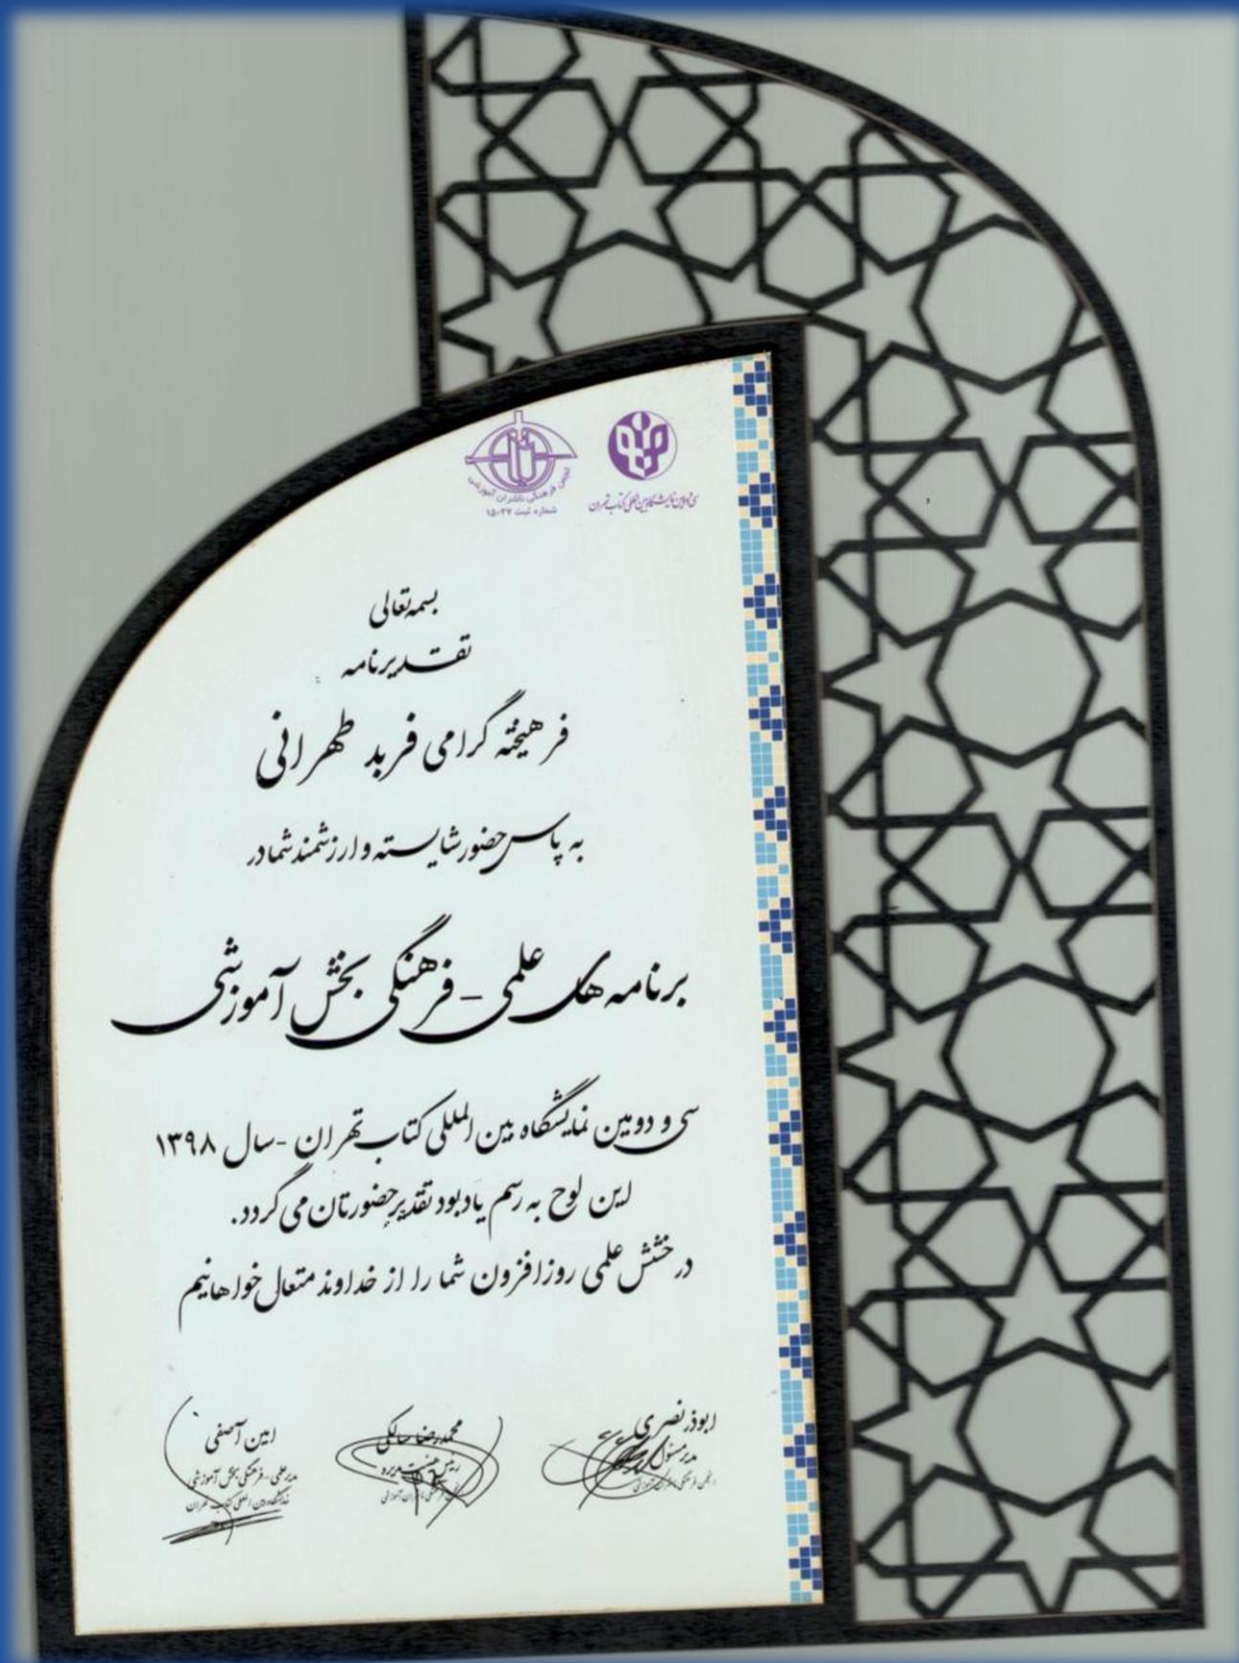 سی و دومین نمایشگاه بین المللی کتاب تهران
انجمن فرهنگی ناشران آموزشی
شماره ثبت ۱۵۰۲۷
بسمه تعالی
تقدیرنامه
فرهیخته گرامی فربد طهرانی
به پاس حضور شایسته و ارزشمند شما در
برنامه های علمی - فرهنگی بخش آموزشی
سی و دومین نمایشگاه بین المللی کتاب تهران - سال ۱۳۹۸
این لوح به رسم یادبود تقدیر حضورتان می گردد.
درخشش علمی روزافزون شما را از خداوند متعال خواهانیم
ابوذر نصری
مدیر مسئول
انجمن فرهنگی ناشران آموزشی
محمدرضا سالکی
رئیس هیئت مدیره
انجمن فرهنگی ناشران آموزشی
امین آصفی
مدیر علمی - فرهنگی بخش آموزشی
نمایشگاه بین المللی کتاب تهران